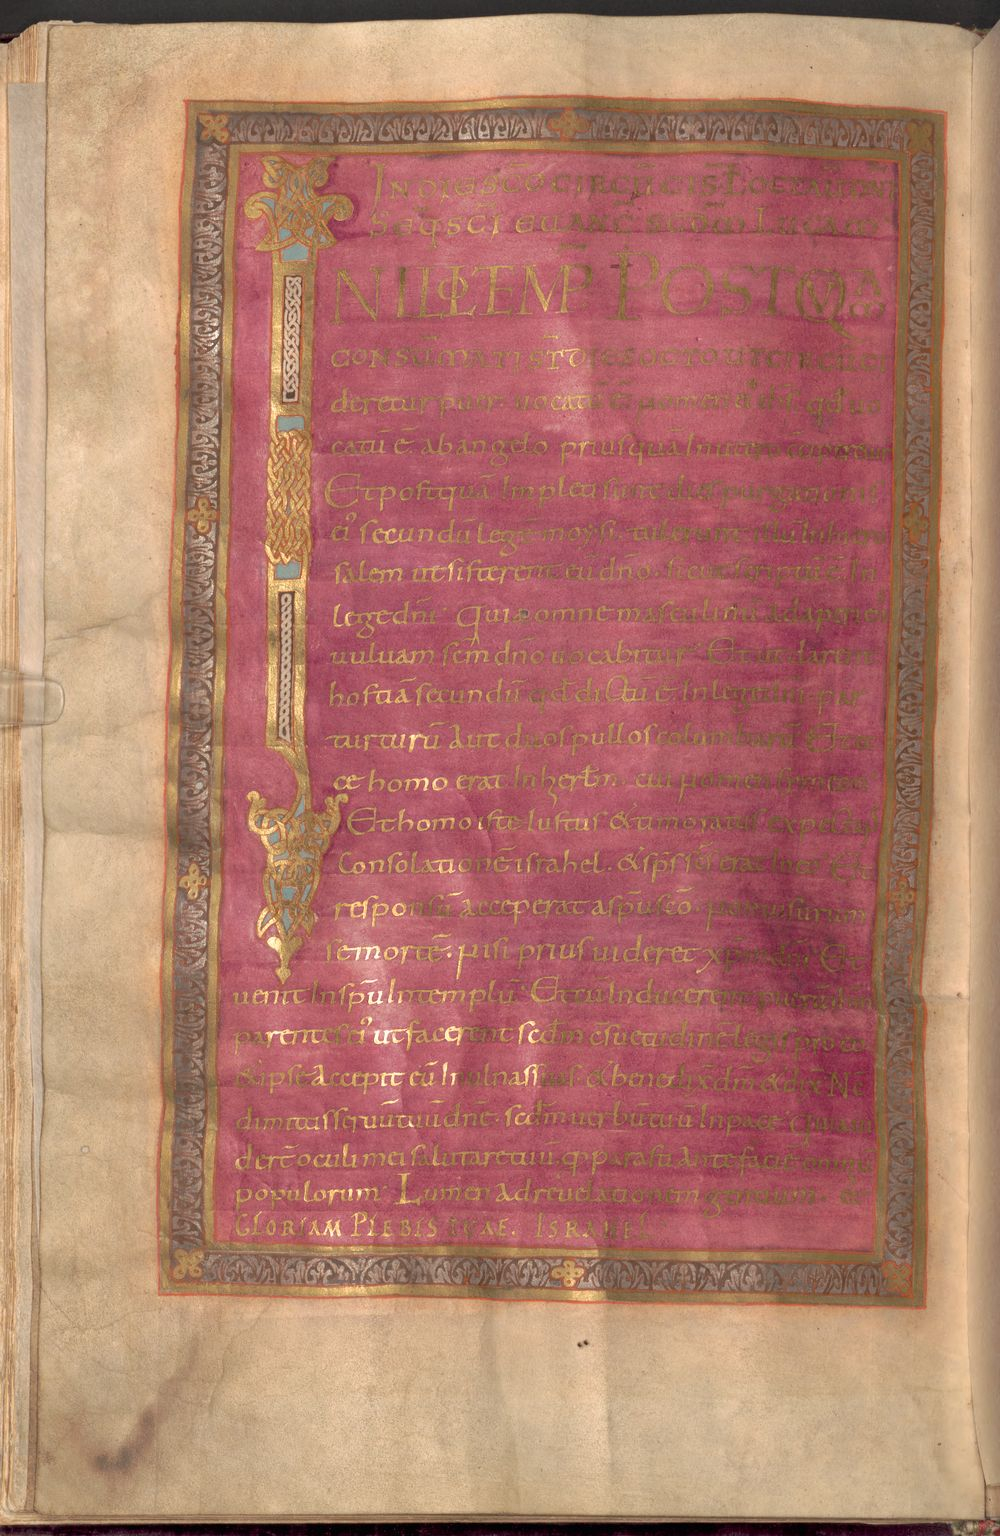 IN DIE S͞CO CIRCU͞CIS. ꝉ OCTAU. D͞NI
SEQ̄ S͞CI EUANG̅ SCD͞M LUCAM
IN ILLO TEMP̄. POSTQUA͞
CONSU͞MATI S͞T DIES OCTO UT CIRCU͞CI
deretur puer. uocatu͞ e͞ nomen ei' ih͞s. qd̄ uo
catu͞ e͞ ab angelo priusqua͞ In utero c͞ciperetur
Et postqua͞ Inpleti sunt dies purgationis
ei' secundu͞ lege͞ moysi. tulerunt illu͞ In hieru
salem ut sisterent eu͞ dn͞o. sicut scriptu͞ e͞ In
lege dn͞i. Quia omne masculinu͞ adaperiens
uuluam scm͞ dn͞o uocabitur. Et ut darent
hostia͞ secundu͞ qd̄ dictu͞ e͞ In lege dn͞i. par
turturu͞ Aut duos pullos columbaru͞. Et ec
ce homo erat In hierl͞m. cui nomen symeon.
Et homo iste Iustus & timoratus. expectans
Consolatione͞ israhel. & sp͞s sc͞s erat In eo. Et
responsu͞ acceperat a sp͞u sc͞o. non uisurum
se morte͞. nisi prius uideret xp͞m dn͞i. Et
uenit In sp͞u In templu͞. Et cu͞ Inducerent pueru͞ ih͞m
parentes ei' ut facerent scd͞m c͞suetudine͞ legis pro eo
& ipse Accepit eu͞ In ulnas suas. & benedix͞ dm͞ & dix͞. Nc̄
dimittis seruu͞ tuu͞ dn͞e. scd͞m uerbu͞ tuu͞ In pace. Quia ui
dert͞ oculi mei salutare tuu͞. qd̄ parasti Ante facie͞ omniu͞
populorum. Lumen Ad reuelationem gentium. &
GLORIAM PLEBIS TUAE. ISRAHEL.